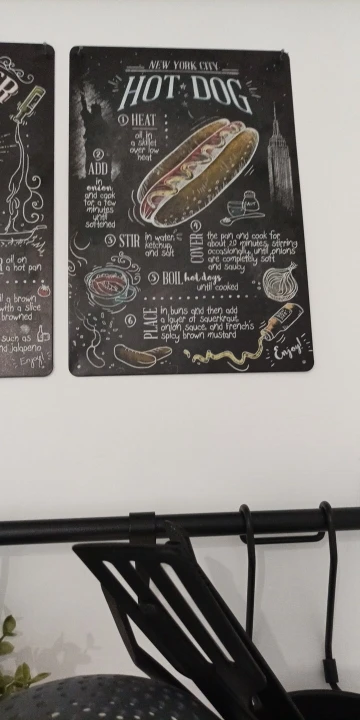 NEW YORK CITY
HOT DOG
1 HEAT
oil in
a skillet
over low
heat
2
ADD
in
onion
and cook
for a few
minutes
until
softened
3 STIR in water,
ketchup,
and salt
COVER
the pan and cook for
about 20 minutes, stirring
occasionally, until onions
are completely soft
and saucy
5 BOIL hot dogs
until cooked
6
PLACE
in buns and then add
a layer of sauerkraut,
onion sauce, and French's
spicy brown mustard
Enjoy!
oil on
a hot pan
brown
with a slice
browned
such as
jalapeno
Enjoy!